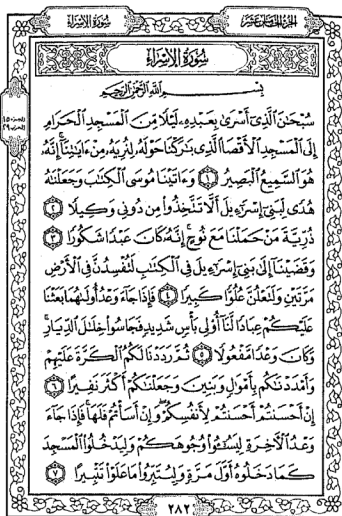 الجزء الخامس عشر
سورة الإسراء
سُورَةُ الإِسْرَاءِ
بِسْمِ اللَّهِ الرَّحْمَٰنِ الرَّحِيمِ
سُبْحَٰنَ ٱلَّذِىٓ أَسْرَىٰ بِعَبْدِهِۦ لَيْلًا مِّنَ ٱلْمَسْجِدِ ٱلْحَرَامِ
إِلَى ٱلْمَسْجِدِ ٱلْأَقْصَا ٱلَّذِى بَٰرَكْنَا حَوْلَهُۥ لِنُرِيَهُۥ مِنْ ءَايَٰتِنَآ ۚ إِنَّهُۥ
هُوَ ٱلسَّمِيعُ ٱلْبَصِيرُ ١ وَءَاتَيْنَا مُوسَى ٱلْكِتَٰبَ وَجَعَلْنَٰهُ
هُدًى لِّبَنِىٓ إِسْرَٰٓءِيلَ أَلَّا تَتَّخِذُوا۟ مِن دُونِى وَكِيلًا ٢
ذُرِّيَّةَ مَنْ حَمَلْنَا مَعَ نُوحٍ ۚ إِنَّهُۥ كَانَ عَبْدًا شَكُورًا ٣
وَقَضَيْنَآ إِلَىٰ بَنِىٓ إِسْرَٰٓءِيلَ فِى ٱلْكِتَٰبِ لَتُفْسِدُنَّ فِى ٱلْأَرْضِ
مَرَّتَيْنِ وَلَتَعْلُنَّ عُلُوًّا كَبِيرًا ٤ فَإِذَا جَآءَ وَعْدُ أُولَىٰهُمَا بَعَثْنَا
عَلَيْكُمْ عِبَادًا لَّنَآ أُو۟لِى بَأْسٍ شَدِيدٍ فَجَاسُوا۟ خِلَٰلَ ٱلدِّيَارِ ۚ
وَكَانَ وَعْدًا مَّفْعُولًا ٥ ثُمَّ رَدَدْنَا لَكُمُ ٱلْكَرَّةَ عَلَيْهِمْ
وَأَمْدَدْنَٰكُم بِأَمْوَٰلٍ وَبَنِينَ وَجَعَلْنَٰكُمْ أَكْثَرَ نَفِيرًا ٦
إِنْ أَحْسَنتُمْ أَحْسَنتُمْ لِأَنفُسِكُمْ ۖ وَإِنْ أَسَأْتُمْ فَلَهَا ۚ فَإِذَا جَآءَ
وَعْدُ ٱلْءَاخِرَةِ لِيَسُۥٓـُٔوا۟ وُجُوهَكُمْ وَلِيَدْخُلُوا۟ ٱلْمَسْجِدَ
كَمَا دَخَلُوهُ أَوَّلَ مَرَّةٍ وَلِيُتَبِّرُوا۟ مَا عَلَوْا۟ تَتْبِيرًا ٧
٢٨٢
الجزء ١٥
الحزب ٢٩